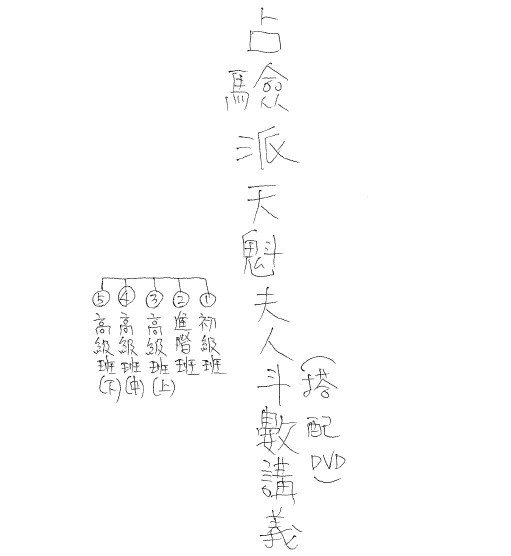 占驗派天魁夫人斗數講義
(搭配DVD)
①初級班
②進階班
③高級班(上)
④高級班(中)
⑤高級班(下)